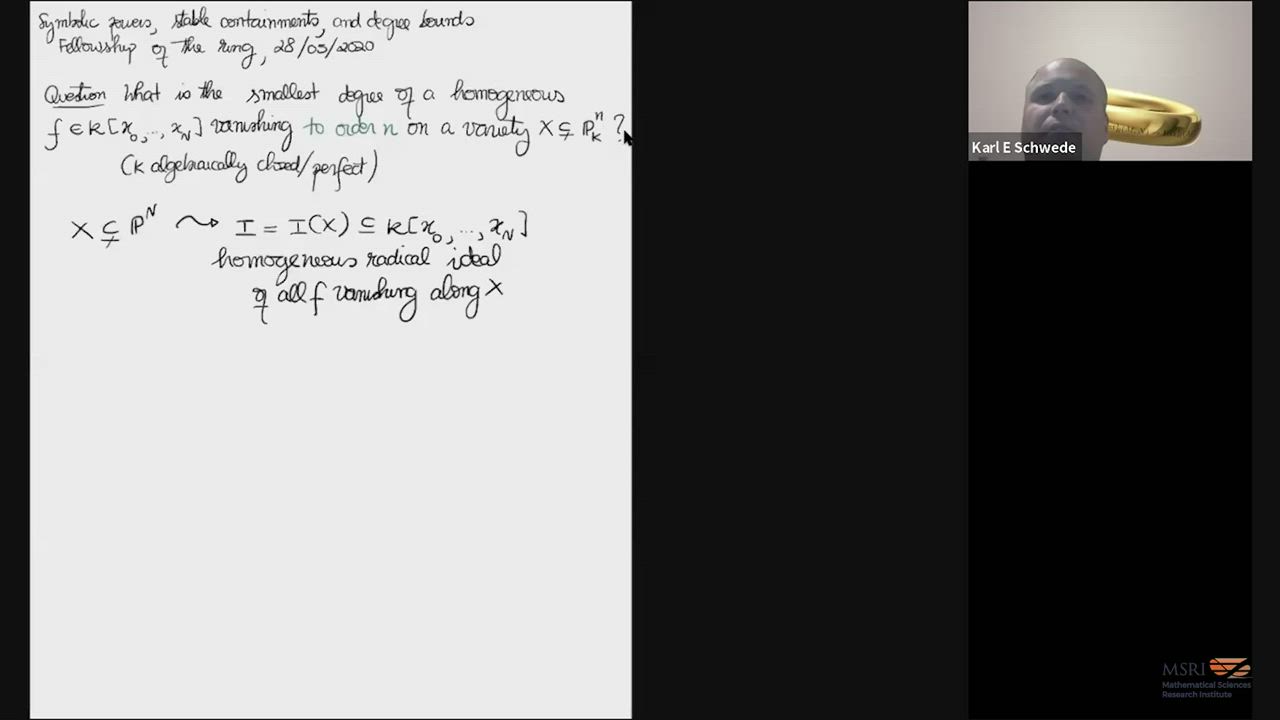 Symbolic powers, stable containments, and degree bounds
Fellowship of the ring, 28/05/2020
Question What is the smallest degree of a homogeneous
f ∈ k[x₀, ..., x_N] vanishing to order n on a variety X ⊊ ℙⁿ_k ?
(k algebraically closed/perfect)
X ⊊ ℙᴺ ⇝ I = I(X) ⊆ k[x₀, ..., x_N]
homogeneous radical ideal
of all f vanishing along X
Karl E Schwede
MSRI
Mathematical Sciences
Research Institute